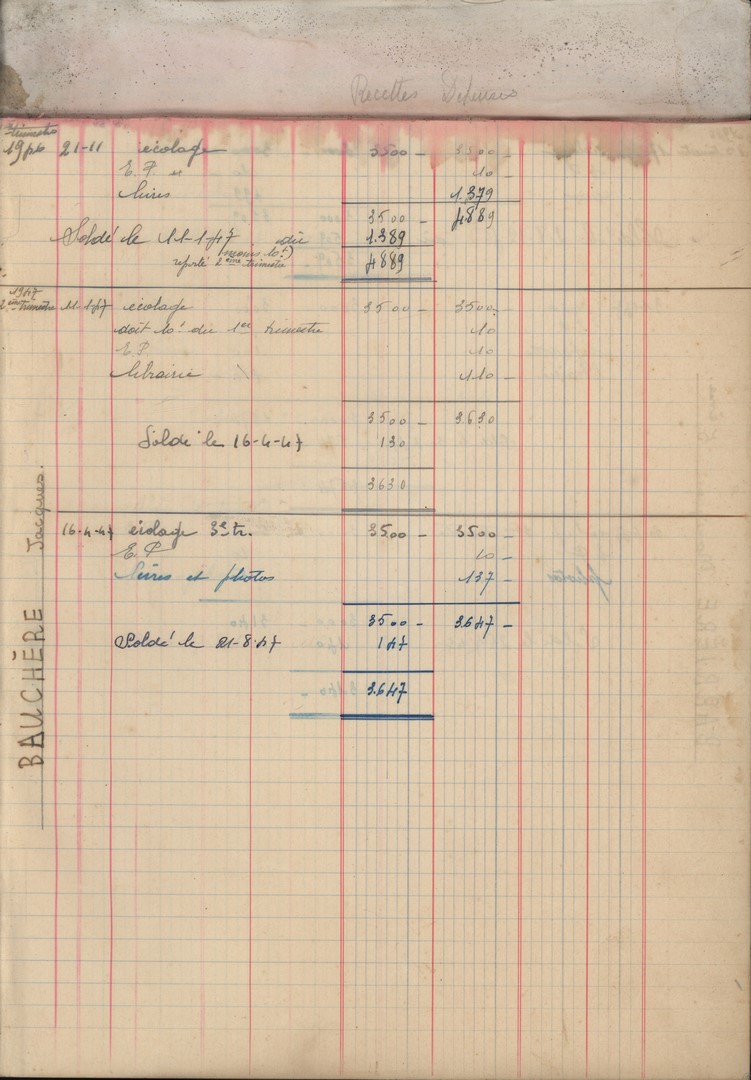 Recettes Dépenses
trimestre
1946 21-11 écolage 3500 - 3500 -
E. P. et 10 -
livres 1.379
3500 - 4889
Soldé le 11-1-47 du 1.389
(moins 10f)
reporté 2ème trimestre 4889
1947
2ème trimestre 11-1-47 écolage 3500 - 3500.
doit 10f du 1er trimestre 10
E P 10
librairie 110 -
3500 - 3.630
Soldé le 16-4-47 130
3630
16-4-47 écolage 3e tr. 3500 - 3500 -
E P 10 -
livres et photos 137 -
3500 - 3.647 -
Soldé le 21-8-47 147
3.647
BAUCHÈRE Jacques.